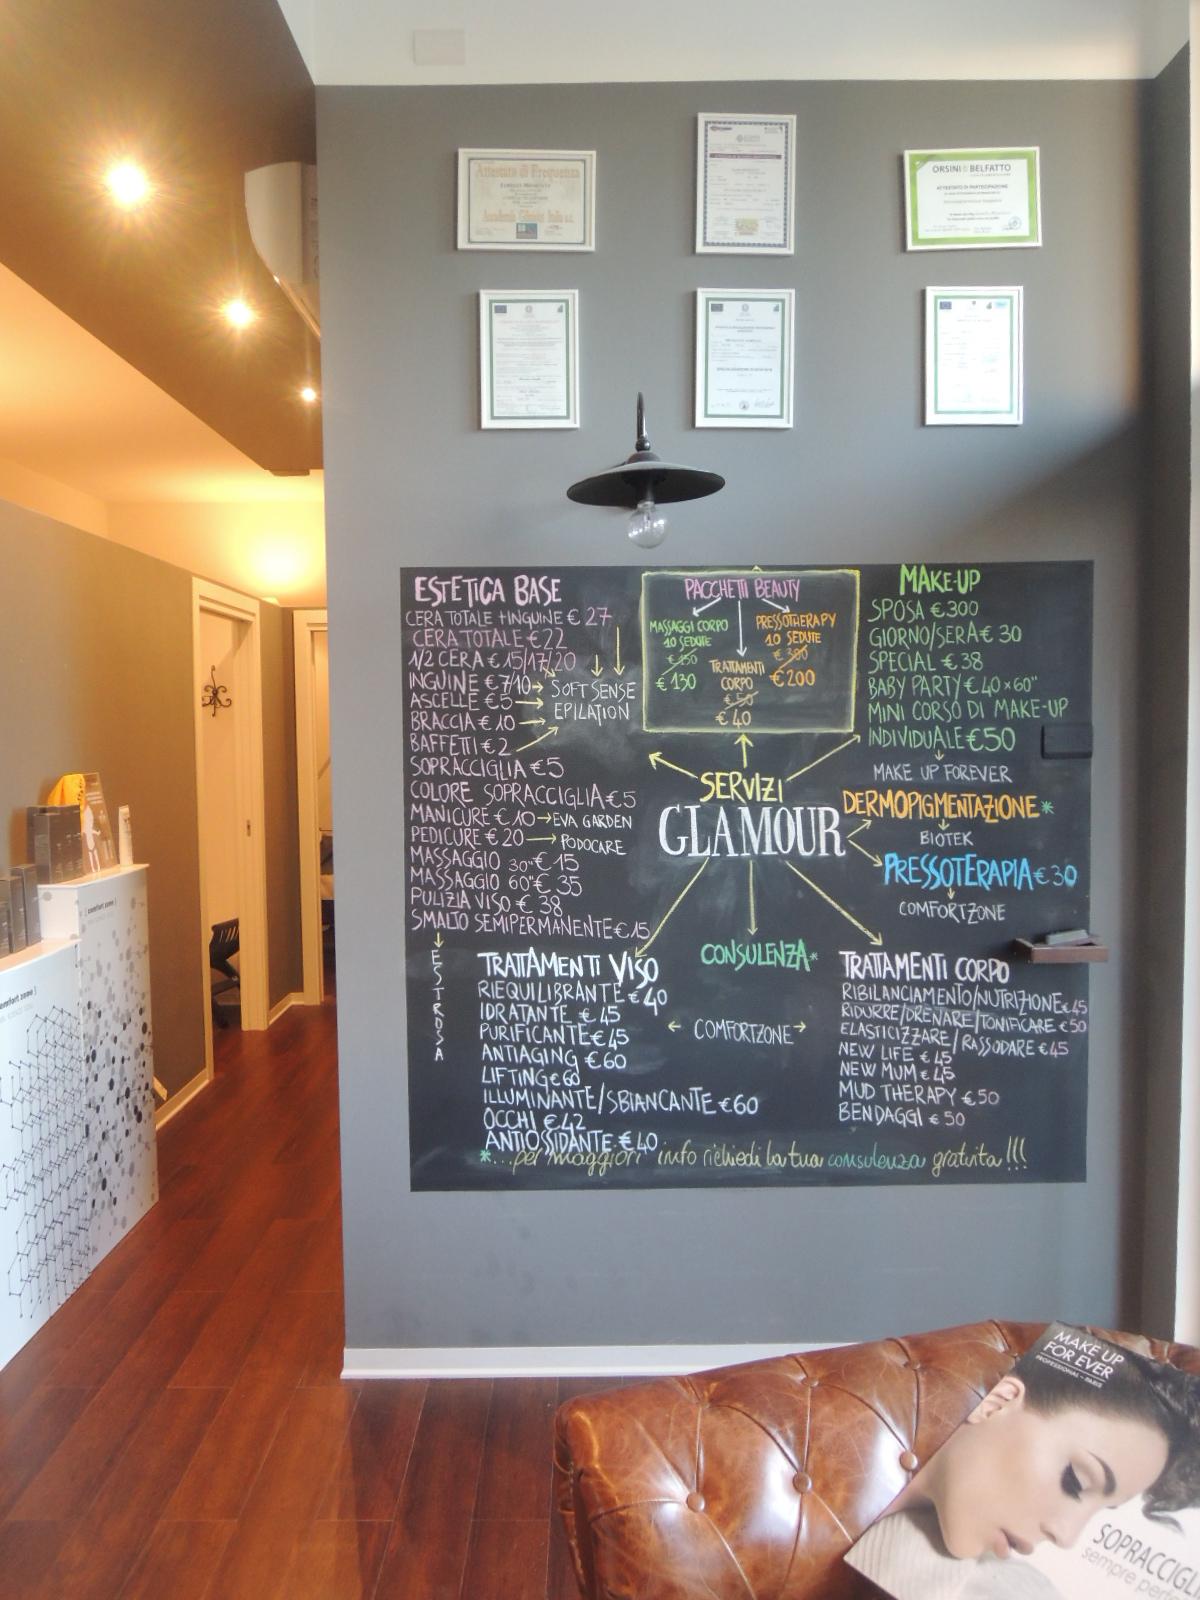 Attestato di Frequenza
ORSINI & BELFATTO
ATTESTATO DI PARTECIPAZIONE
ESTETICA BASE
CERA TOTALE + INGUINE € 27
CERA TOTALE € 22
1/2 CERA € 15/17/20
INGUINE € 7/10
ASCELLE € 5
BRACCIA € 10
BAFFETTI € 2
SOFT SENSE
EPILATION
SOPRACCIGLIA € 5
COLORE SOPRACCIGLIA € 5
MANICURE € 10 → EVA GARDEN
PEDICURE € 20 → PODOCARE
MASSAGGIO 30" € 15
MASSAGGIO 60" € 35
PULIZIA VISO € 38
SMALTO SEMIPERMANENTE € 15
ESTROSA
PACCHETTI BEAUTY
MASSAGGI CORPO
10 SEDUTE
€ 150
€ 130
TRATTAMENTI
CORPO
€ 50
€ 40
PRESSOTHERAPY
10 SEDUTE
€ 300
€ 200
MAKE-UP
SPOSA € 300
GIORNO/SERA € 30
SPECIAL € 38
BABY PARTY € 40 x 60"
MINI CORSO DI MAKE-UP
INDIVIDUALE € 50
MAKE UP FOREVER
SERVIZI
GLAMOUR
DERMOPIGMENTAZIONE *
BIOTEK
PRESSOTERAPIA € 30
COMFORTZONE
TRATTAMENTI VISO
RIEQUILIBRANTE € 40
IDRATANTE € 45
PURIFICANTE € 45
ANTIAGING € 60
LIFTING € 60
ILLUMINANTE/SBIANCANTE € 60
OCCHI € 42
ANTIOSSIDANTE € 40
CONSULENZA *
← COMFORTZONE →
TRATTAMENTI CORPO
RIBILANCIAMENTO/NUTRIZIONE € 45
RIDURRE/DRENARE/TONIFICARE € 50
ELASTICIZZARE/RASSODARE € 45
NEW LIFE € 45
NEW MUM € 45
MUD THERAPY € 50
BENDAGGI € 50
*...per maggiori info richiedi la tua consulenza gratuita!!!
[ comfort zone ]
comfort zone ]
MAKE UP
FOR EVER
PROFESSIONAL - PARIS
SOPRACCIGLI
sempre perfe